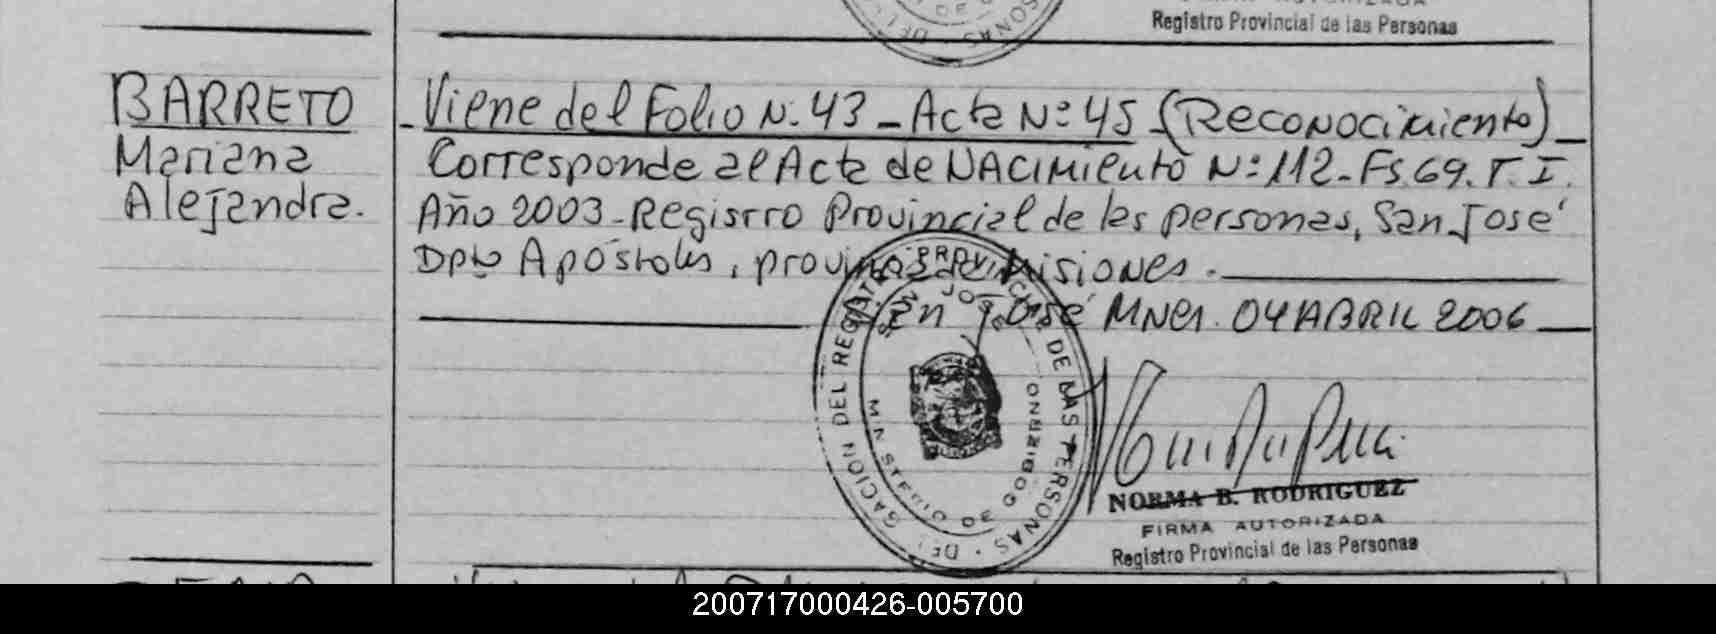 Registro Provincial de las Personas
BARRETO
Mariana
Alejandra.
Viene del Folio N. 43 - Acta Nº 45 (Reconocimiento)
Corresponde al Acta de NACIMIENTO Nº 112 - Fs 69. T. I.
Año 2003 - Registro Provincial de las personas, San José
Dpto Apóstoles, provincia de Misiones.
San José Mnes. 04 ABRIL 2006
DEL REG
PROVINCIAL DE LAS PERSONAS
SAN JOSE
MINISTERIO DE GOBIERNO
NORMA B. RODRIGUEZ
FIRMA AUTORIZADA
Registro Provincial de las Personas
200717000426-005700